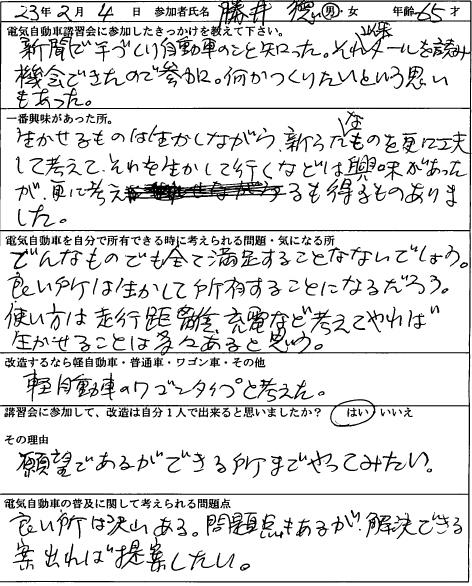 23年2月4日 参加者氏名 勝井 男・女 年齢65才
電気自動車講習会に参加したきっかけを教えて下さい。
新聞で手づくり自動車のこと知った。それ以来メールを読み
機会できたので参加。何かつくりたいという思い
もあった。
一番興味があった所。
生かせるものは生かしながら、新らたなものを更に工夫
して考えて、それを生かして行くなどは興味があった
が、更に考え るも得るものありま
した。
電気自動車を自分で所有できる時に考えられる問題・気になる所
どんなものでも全て満足することなないでしょう。
良い所は生かして所有することになるだろう。
使い方は走行距離、充電など考えてやれば
生かせることは多々あると思う。
改造するなら軽自動車・普通車・ワゴン車・その他
軽自動車のワゴンタイプと考えた。
講習会に参加して、改造は自分1人で出来ると思いましたか? はい・いいえ
その理由
願望であるができる所までやってみたい。
電気自動車の普及に関して考えられる問題点
良い所は沢山ある。問題点もあるが、解決できる
案出れば提案したい。